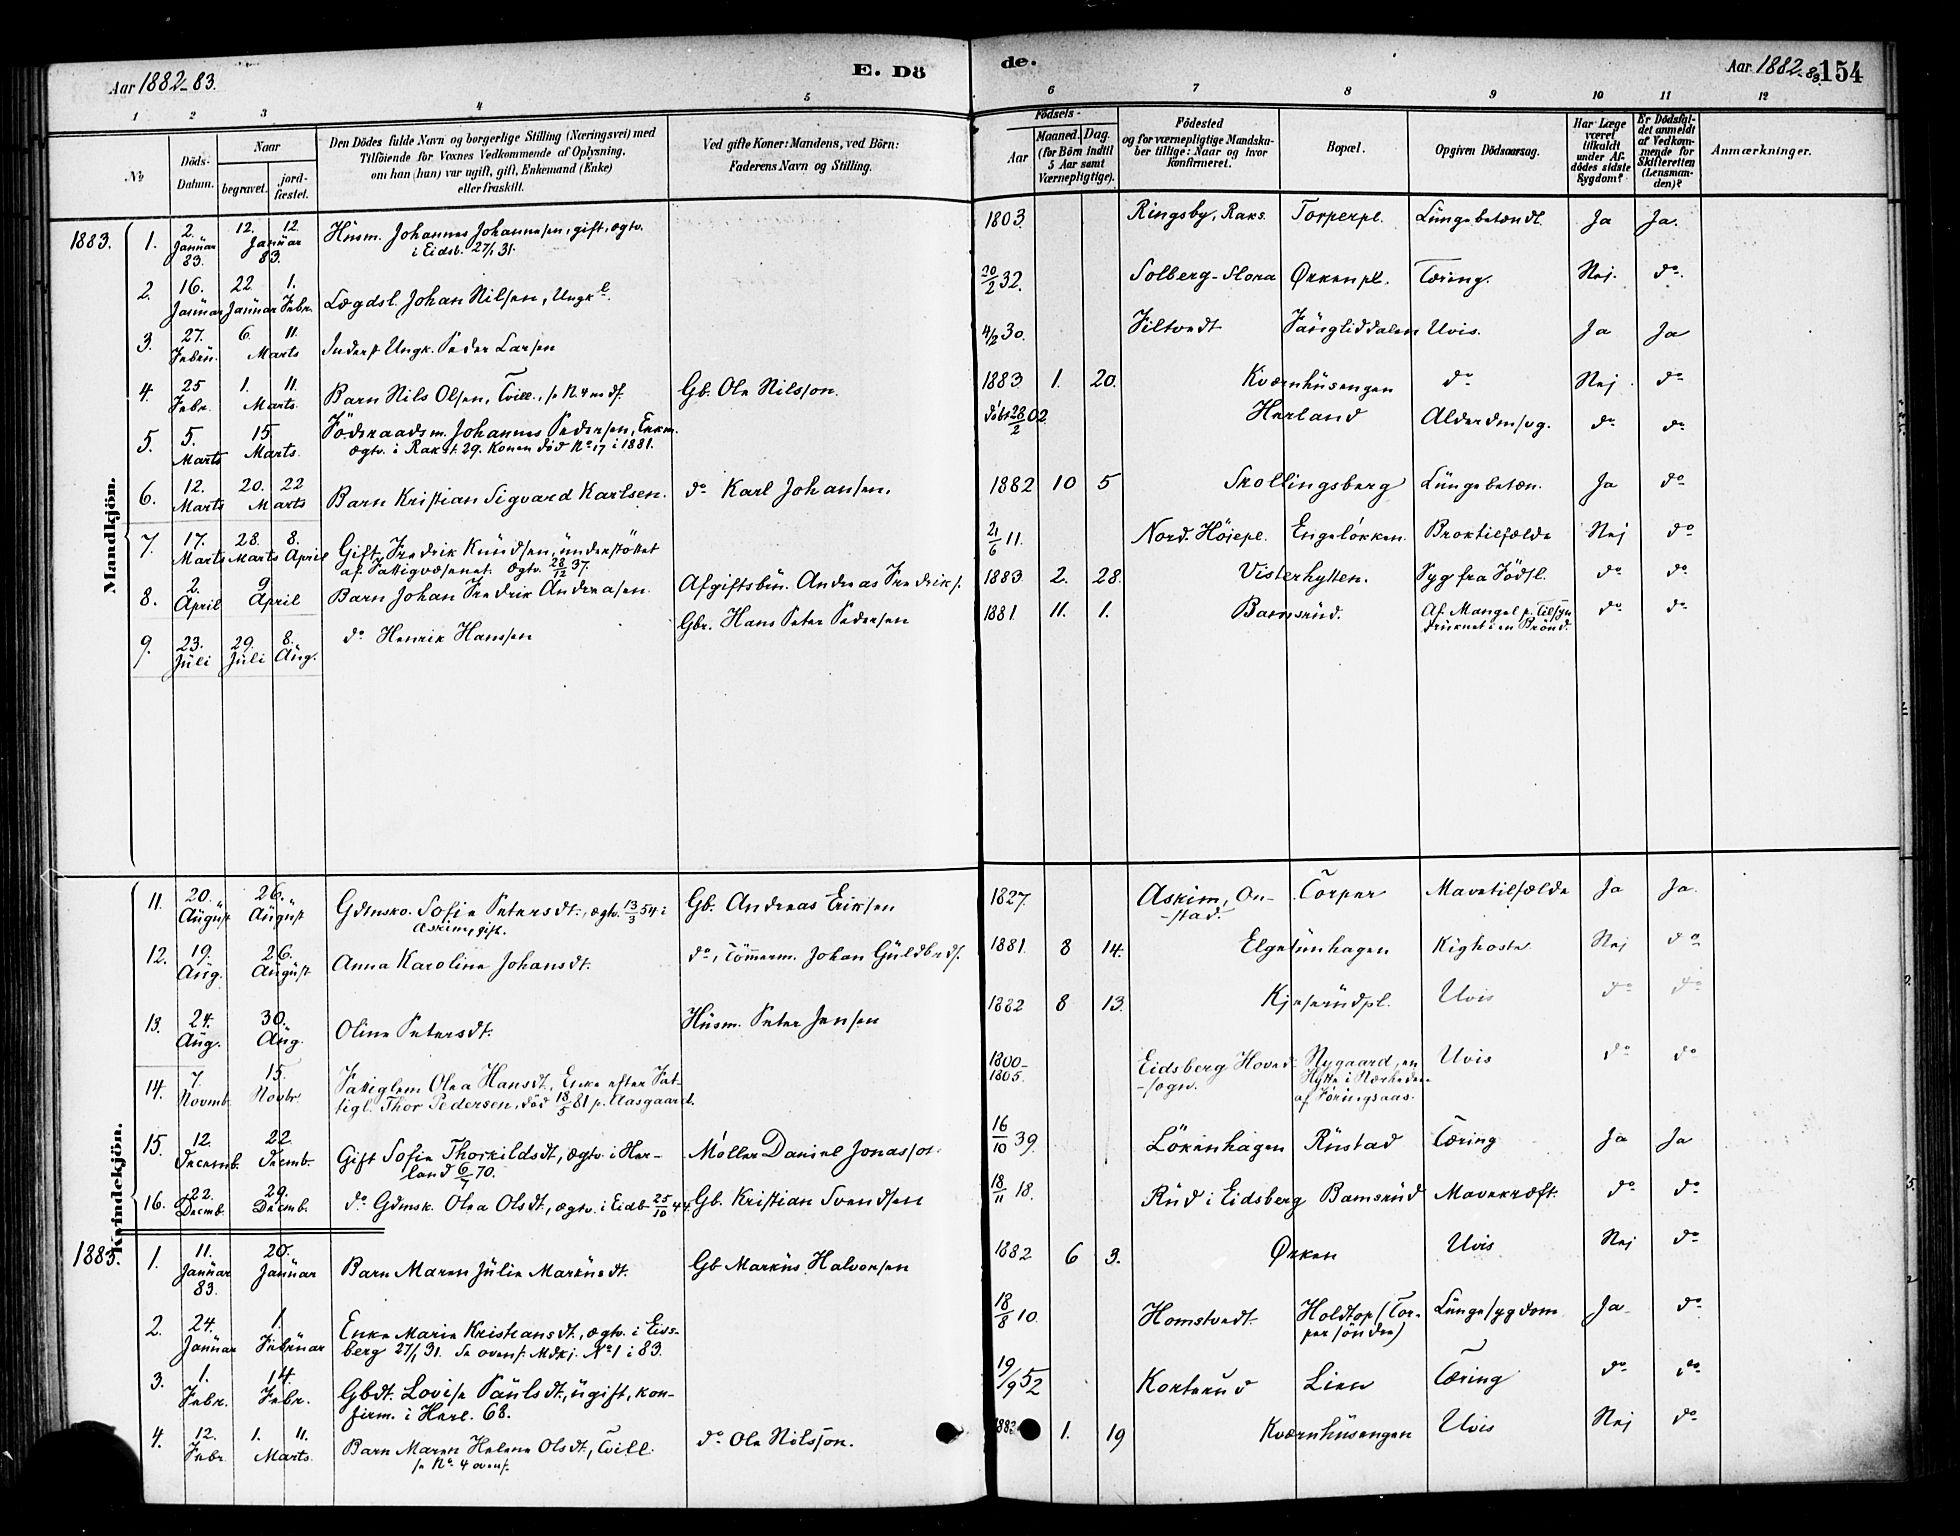 Aar 1882-83. E. Dö
de. Aar 1882-83. 154
1 2 3 4 5 6 7 8 9 10 11 12
No
Döds-Datum.
Naar
begravet.
jord-fæstet.
Den Dödes fulde Navn og borgerlige Stilling (Næringsvei) med
Tilföiende for Voxnes Vedkommende af Oplysning,
om han (hun) var ugift, gift, Enkemand (Enke)
eller fraskilt.
Ved gifte Koner: Mandens, ved Börn:
Faderens Navn og Stilling.
Födsels-
Aar
Maaned. Dag.
(for Börn indtil
5 Aar samt
Værnepligtige).
Födested
og for værnepligtige Mandska-
ber tillige: Naar og hvor
konfirmeret.
Bopæl.
Opgiven Dödsaarsag.
Har Læge
været
tilkaldt
under Af-
dödes sidste
Sygdom?
Er Dödsfal-
det anmeldt
af Vedkom-
mende for
Skifteretten
(Lensman-
den)?
Anmærkninger.
Mandkjön.
1883. 1. 2. Januar 83. 12. 12. Januar 83. Husm. Johannes Johannesen, gift, ægtv. 1803 Ringsby, Raks. Torperpl. Lungebetændl. Ja Ja.
i Eidsb. 27/1 31.
2. 16. Januar 22 Januar 1. Febr. Lægdsl. Johan Nilsen, Ungk. 20/2 32. Solberg-Slora Ørkenpl. Tæring. Nej. do.
3. 27. Febru. 6. 11. Marts Inderst Ungk. Peder Larsen 4/2 30. Uvis. Ja Ja
4. 25 Febr. 1. 11. Marts. Barn Nils Olsen, Tvill., se N. 4 ndf. Gb. Ole Nilsson. 1883 1. 20. Kværnhusengen do Nej. do
5. 5. Marts 15 Marts. Föderaadsm. Johannes Pedersen, Enkm. döbt 28/2 02 Herland Alderdomssvg. do do
ægtv. i Rakst. 29. Konen död No 17 i 1881.
6. 12. Marts 20. 22 Marts Barn Kristian Sigvard Karlsen. do Karl Johansen. 1882 10 5 Skollingsberg Lungebetæn. Ja do
7. 17. Marts 28. Marts 8. April Gift Fredrik Knudsen, understöttet 21/6 11. Nord. Höiepl. Engeløkken. Broktilfælde Nej do
af Fattigvæsenet. ægtv. 28/12 37.
8. 2. April 9 April Barn Johan Fredrik Andreasen. Afgiftsbru. Andreas Fredriks. 1883 2. 28. Visterhytten. Syg fra Födsl. do do
9. 23. Juli 29. Juli 8. Aug. do Henrik Hanssen Gbr. Hans Peter Pedersen 1881 11. 1. Bamsrud. Af Mangel p. Tilsyn do do
druknet i en Brönd.
Kvindekjön.
11. 20. August 26. August Gdmsko. Sofie Petersdt., ægtv. 13/3 54 i Gb. Andreas Eriksen 1827. Askim, On- Torper Mavetilfælde Ja Ja.
Askim, gift. -stad.
12. 19. Aug. 26. August Anna Karoline Johansdt. do, Tömmerm. Johan Guldbrds. 1881 8 14. Elgetunhagen Kighoste Nej do
13. 24. Aug. 30. Aug. Oline Petersdt. Husm. Peter Jensen 1882 8 13. Kjeserudpl. Uvis do do
14. 7. Novmb. 15. Novbr. Fattiglem Olea Hansdt., Enke efter Fat- 1800- Eidsberg Hoved- Nygaard, en Uvis do do
tigl. Thor Pedersen, död 18/5 81 p. Aasgaard. 1805. -sogn. Hytte i Nærheden
af Joringsaas.
15. 12. Decemb. 22. Decmb. Gift Sofie Thorkildsdt., ægtv. i Her- Møller Daniel Jonasson 16/10 39. Lökenhagen Rustad Tæring Ja Ja
land 6/7 70.
16. 22. Decmb. 29. Decmb. do Gdmsk. Olea Olsdt., ægtv. i Eidb. 25/10 44. Gb. Kristian Svendsen 18/11 18. Rud i Eidsberg Bamsrud Mavekræft. do do
1883. 1. 11. Januar 83. 20. Januar Barn Maren Julie Markusdt. Gb Markus Halvorsen 1882 6 3. Ørken Uvis Nej do
2. 24. Januar 1. Februar Enke Marie Kristiansdt., ægtv. i Eids- 18/8 10. Homstvedt Holdtop (Tor- Lungesygdom Ja do
berg 27/1 31. Se ovenf. Mdkj. No 1 i 83. per söndre)
3. 1. Febr. 14. Febr. Gbdt. Lovise Paulsdt., ugift, kon- 19/9 52 Korterud Lien Tæring do do
firm. i Herl. 68.
4. 12. Febr. 1. 11. Marts. Barn Maren Helene Olsdt., Tvill. do Ole Nilsson. 1883 1. 19 Kværnhusengen Uvis Nej do
se No 4 ovenf.